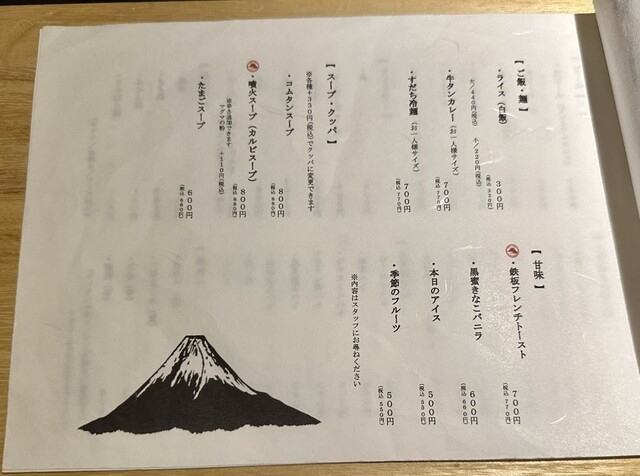 【ご飯・麺】
・ライス（白飯） 300円
（税込330円）
大／440円（税込） 小／220円（税込）
・牛タンカレー（お一人様サイズ） 700円
（税込770円）
・すだち冷麺（お一人様サイズ） 700円
（税込770円）
【スープ・クッパ】
※各種＋330円（税込）でクッパに変更できます
・コムタンスープ 800円
（税込880円）
・噴火スープ（カルビスープ） 800円
（税込880円）
マグマの粉 ＋110円（税込）
・たまごスープ 600円
（税込660円）
【甘味】
・鉄板フレンチトースト 700円
（税込770円）
・黒蜜きなこバニラ 600円
（税込660円）
・本日のアイス 500円
（税込550円）
・季節のフルーツ 500円
（税込550円）
※内容はスタッフにお尋ねください